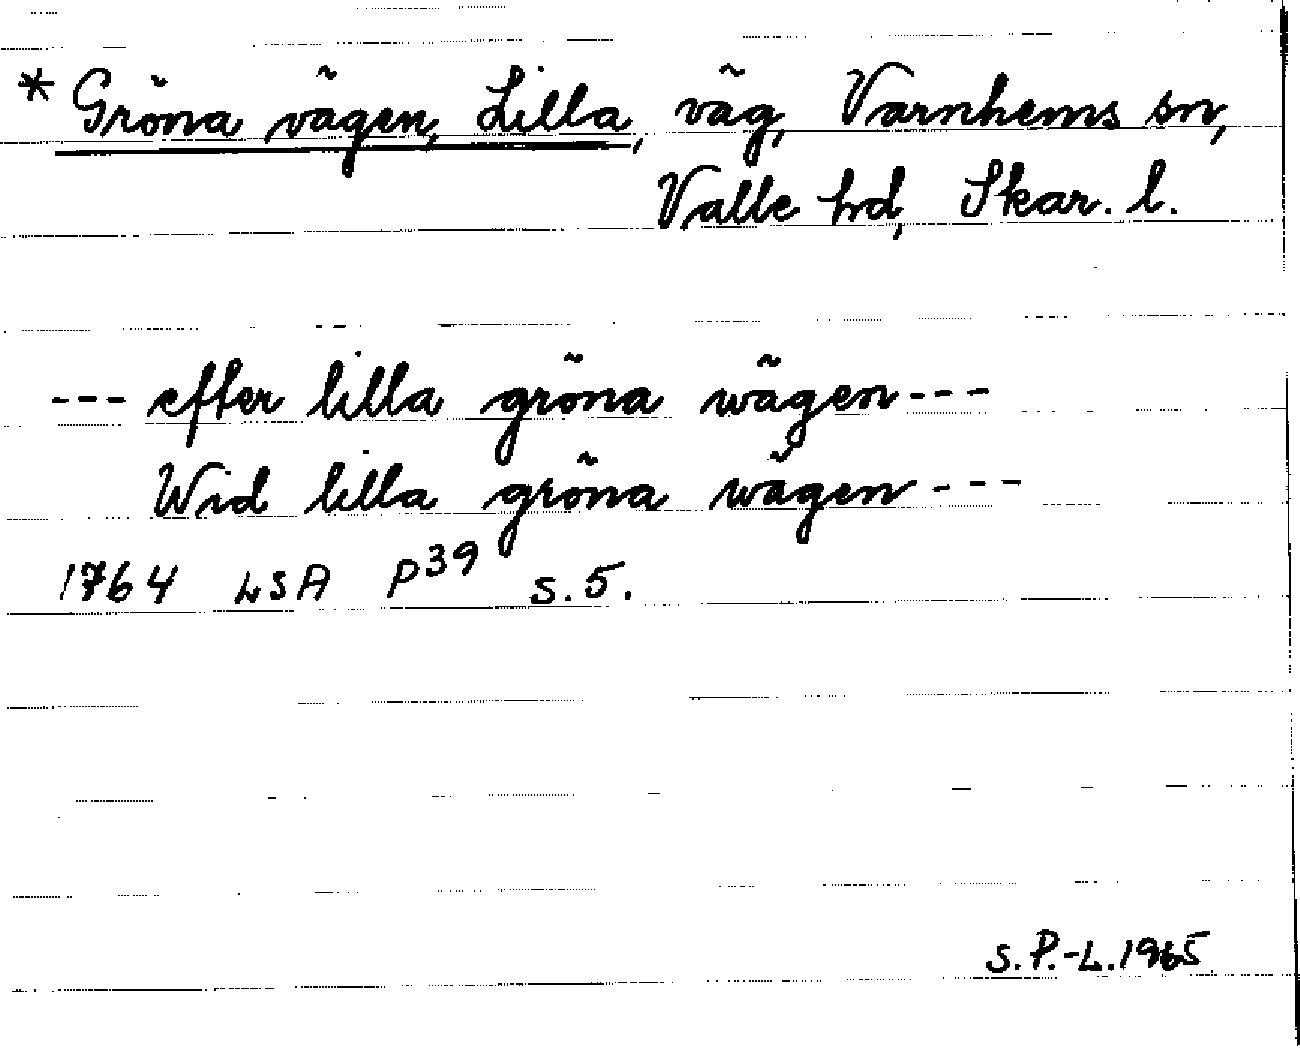 * Gröna vägen, Lilla, väg, Varnhems sn,
Valle hd, Skar. l.
--- efter lilla gröna wägen ---
Wid lilla gröna wägen ---
1764 LSA P39 s. 5.
S. P.-L. 1965